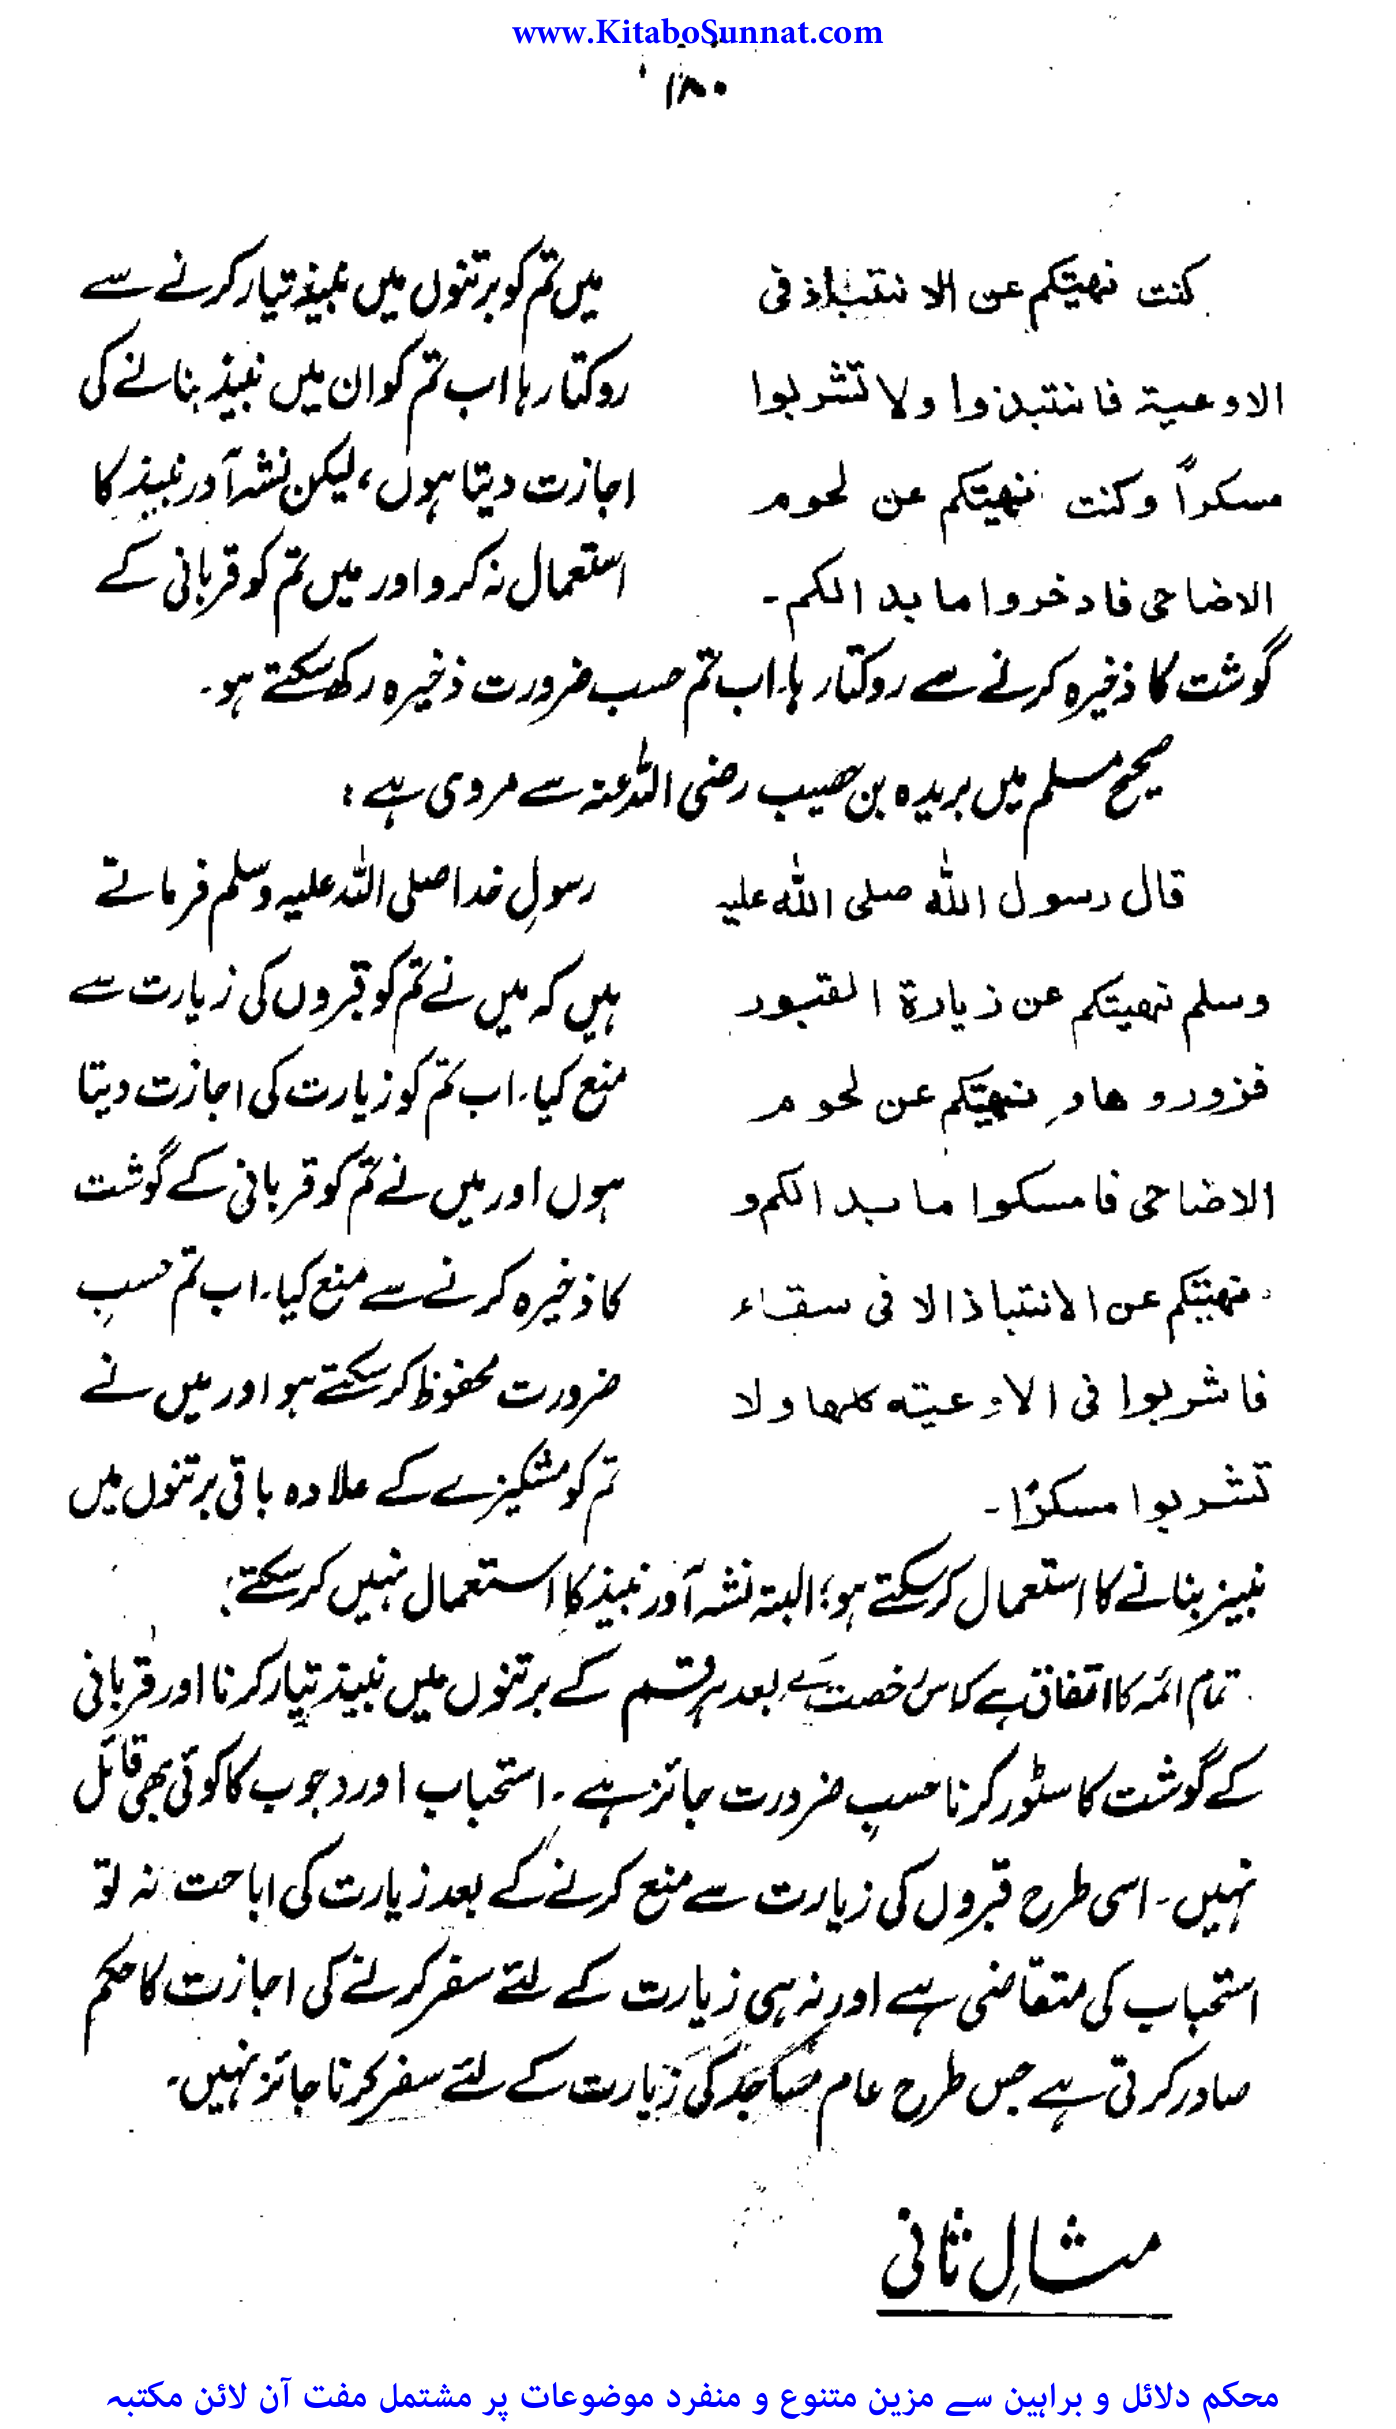 www.KitaboSunnat.com
۱۸۰
کنت نهیتکم عن الانتباذ فی
الاوعیة فانتبذوا ولا تشربوا
مسکراً وکنت نهیتکم عن لحوم
الاضاحی فادخروا ما بدا لکم ۔
میں تم کو برتنوں میں نبیذ تیار کرنے سے
روکتا رہا اب تم کو ان میں نبیذ بنانے کی
اجازت دیتا ہوں، لیکن نشہ آور نبیذ کا
استعمال نہ کرو اور میں تم کو قربانی کے
گوشت کا ذخیرہ کرنے سے روکتا رہا۔ اب تم حسب ضرورت ذخیرہ رکھ سکتے ہو۔
صحیح مسلم میں بریدہ بن حصیب رضی اللہ عنہ سے مروی ہے :
قال رسول الله صلی الله علیہ
وسلم نهیتکم عن زیارة القبور
فزوروها و نهیتکم عن لحوم
الاضاحی فامسکوا ما بدا لکم و
نهیتکم عن الانتباذ الا فی سقاء
فاشربوا فی الاوعیته کلها ولا
تشربوا مسکرًا ۔
رسولِ خدا صلی اللہ علیہ وسلم فرماتے
ہیں کہ میں نے تم کو قبروں کی زیارت سے
منع کیا۔ اب تم کو زیارت کی اجازت دیتا
ہوں اور میں نے تم کو قربانی کے گوشت
کا ذخیرہ کرنے سے منع کیا۔ اب تم حسبِ
ضرورت محفوظ کر سکتے ہو اور میں نے
تم کو مشکیزے کے علاوہ باقی برتنوں میں
نبیز بنانے کا استعمال کر سکتے ہو؛ البتہ نشہ آور نبیذ کا استعمال نہیں کر سکتے:
تمام ائمہ کا اتفاق ہے کہ اس رخصت کے بعد ہر قسم کے برتنوں میں نبیذ تیار کرنا اور قربانی
کے گوشت کا سٹور کرنا حسبِ ضرورت جائز ہے ۔ استحباب اور وجوب کا کوئی بھی قائل
نہیں ۔ اسی طرح قبروں کی زیارت سے منع کرنے کے بعد زیارت کی اباحت نہ تو
استحباب کی متقاضی ہے اور نہ ہی زیارت کے لئے سفر کرنے کی اجازت کا حکم
صادر کرتی ہے جس طرح عام مساجد کی زیارت کے لئے سفر کرنا جائز نہیں۔
مثالِ ثانی
محکم دلائل و براہین سے مزین متنوع و منفرد موضوعات پر مشتمل مفت آن لائن مکتبہ